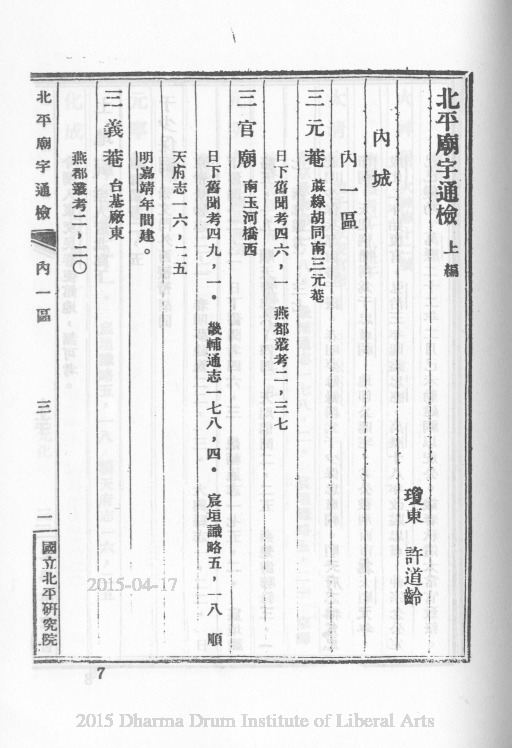 北平廟宇通檢 上編
瓊東 許道齡
內城
內一區
三元菴 蔴線胡同南三元菴
日下舊聞考四六,一 燕都叢考二,三七
三官廟 南玉河橋西
日下舊聞考四九,一。 畿輔通志一七八,四。 宸垣識略五,一八 順
天府志一六,二五
明嘉靖年間建。
三義菴 台基廠東
燕都叢考二,二〇
北平廟宇通檢 內一區 三 一 國立北平研究院
7
2015-04-17
2015 Dharma Drum Institute of Liberal Arts